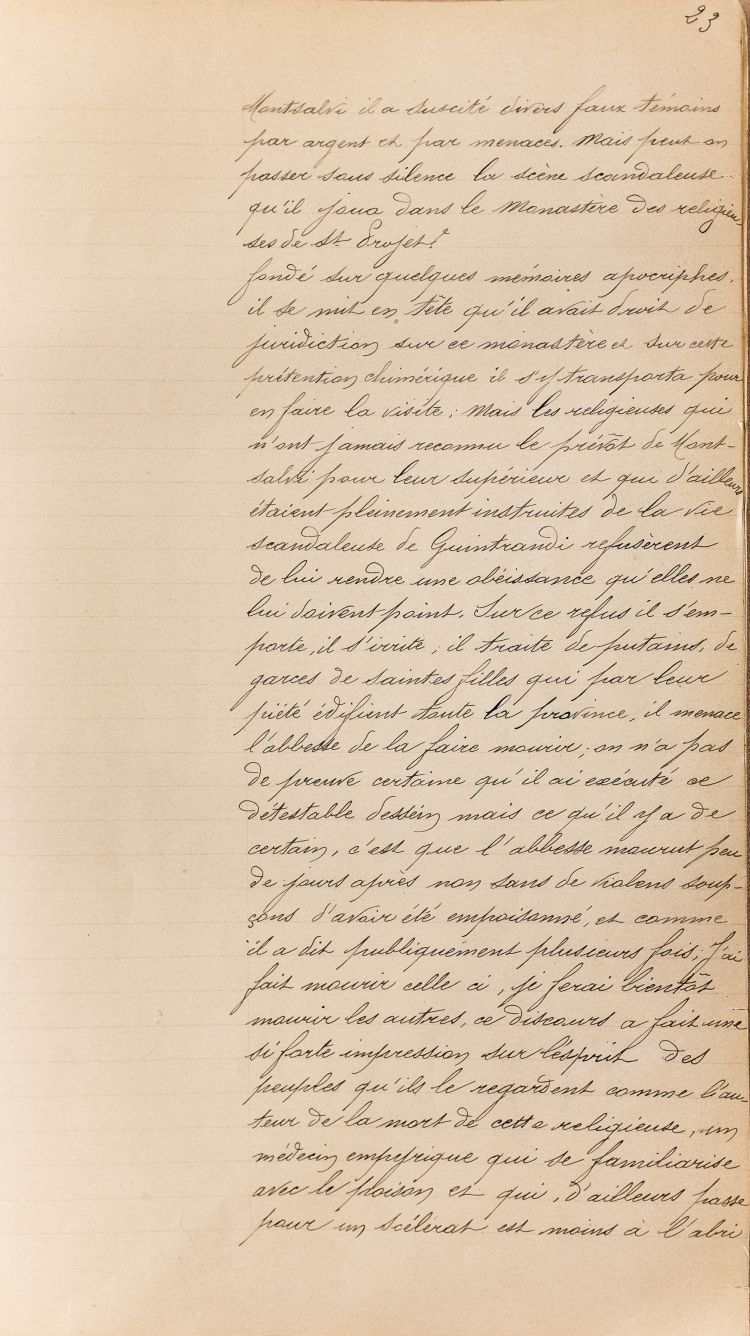 23
Montsalvi il a suscité divers faux témoins
par argent et par menaces. Mais peut on
passer sous silence la scène scandaleuse
qu'il joua dans le Monastère des religieu-
ses de St Projet?
fondé sur quelques mémoires apocriphes.
il se mit en tête qu'il avait droit de
juridiction sur ce monastère et sur cette
prétention chimérique il s'y transporta pour
en faire la visite; Mais les religieuses qui
n'ont jamais reconnu le prévôt de Mont-
salvi pour leur supérieur et qui d'ailleurs
étaient pleinement instruites de la vie
scandaleuse de Guintrandi refusèrent
de lui rendre une obéissance qu'elles ne
lui doivent point. Sur ce refus il s'em-
porte, il s'irrite, il traite de putains, de
garces de saintes filles qui par leur
piété édifient toute la province, il menace
l'abbesse de la faire mourir; on n'a pas
de preuve certaine qu'il ai exécuté ce
détestable dessein mais ce qu'il y a de
certain, c'est que l'abbesse mourut peu
de jours après non sans de violens soup-
çons d'avoir été empoisonné, et comme
il a dit publiquement plusieurs fois; J'ai
fait mourir celle ci, je ferai bientôt
mourir les autres, ce discours a fait une
si forte impression sur l'ésprit des
peuples qu'ils le regardent comme l'au-
teur de la mort de cette religieuse, un
médecin empyrique qui se familiarise
avec le poison et qui, d'ailleurs passe
pour un scélérat est moins à l'abri